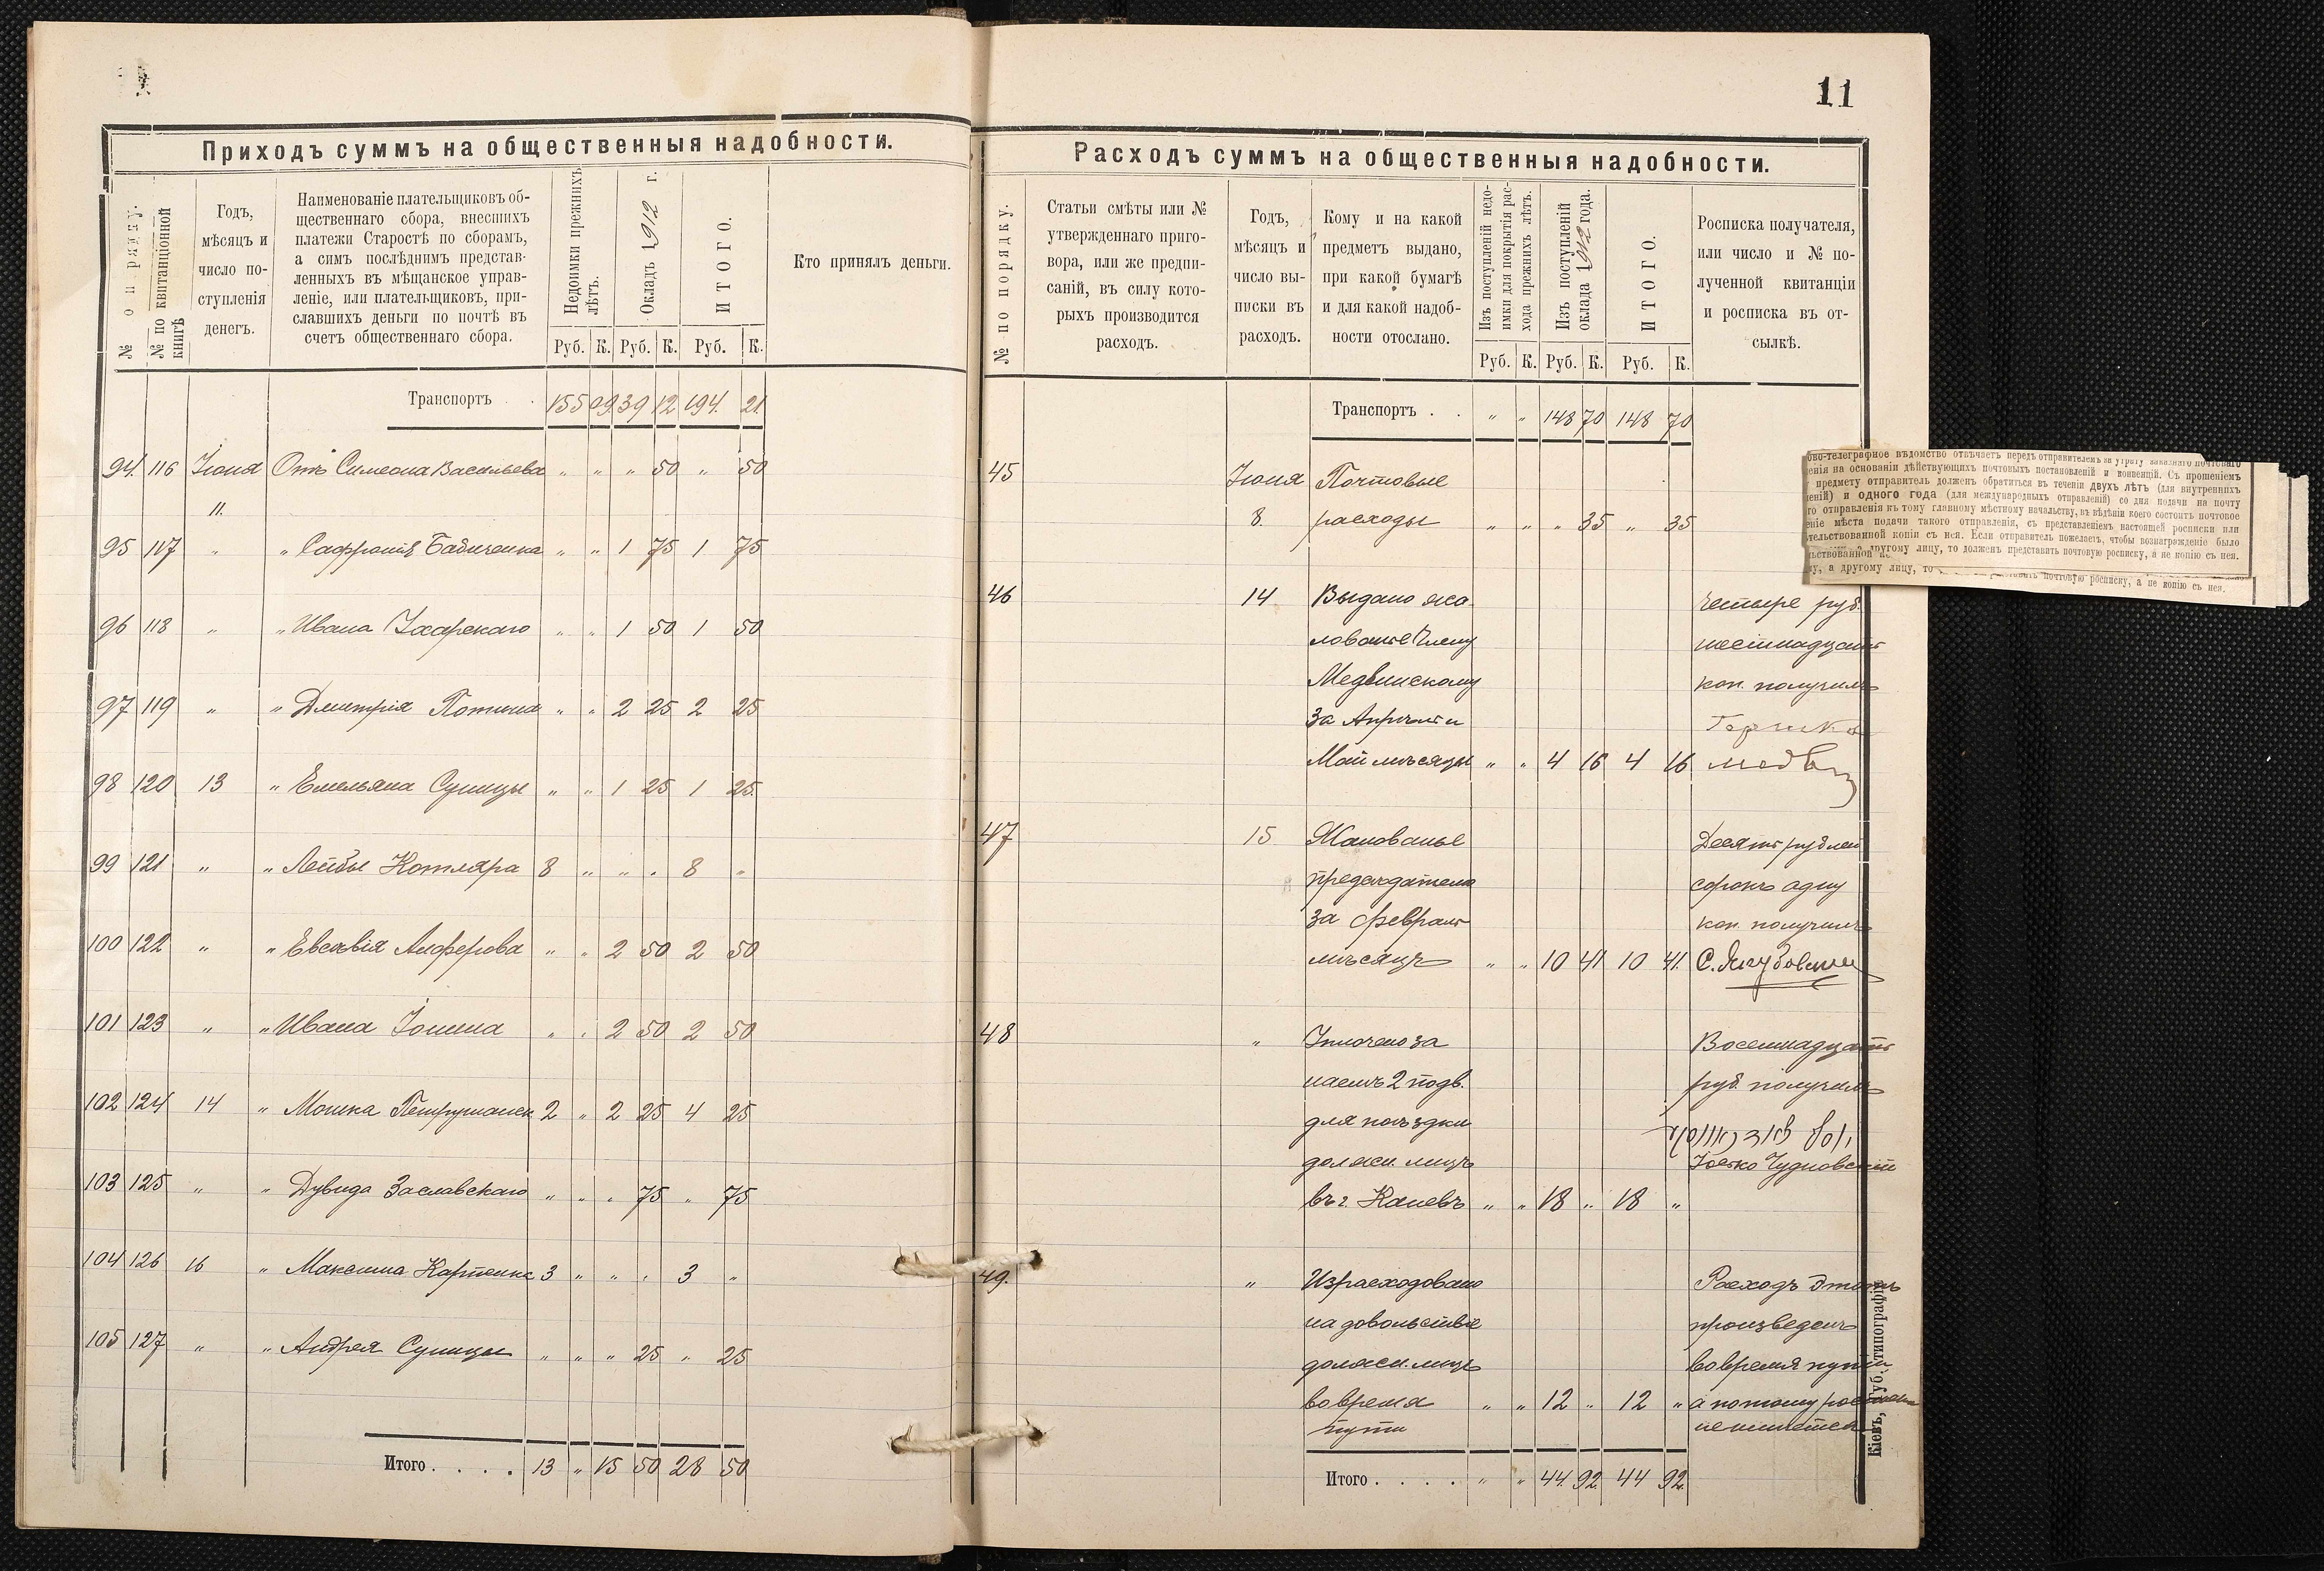 11
Приходъ суммъ на общественныя надобности.
№ по порядку.
№ по квитанціонной книгѣ
Годъ,
мѣсяцъ и
число по-
ступленія
денегъ.
Наименованіе плательщиковъ об-
щественнаго сбора, внесшихъ
платежи Старостѣ по сборамъ,
а симъ послѣднимъ представ-
ленныхъ въ мѣщанское управ-
леніе, или плательщиковъ, при-
славшихъ деньги по почтѣ въ
счетъ общественнаго сбора.
Недоимки прежнихъ лѣтъ.
Окладъ 1912 г.
ИТОГО.
Кто принялъ деньги.
Руб. К. Руб. К. Руб. К.
Транспортъ . . 155 09 39 12 194 21
94. 116 Іюня Отъ Симеона Васильева „ „ „ 50 „ 50
11.
95 117 „ „ Сафронія Бабиченка „ „ 1 75 1 75
96 118 „ „ Ивана „ „ 1 50 1 50
97 119 „ „ Дмитрія „ „ 2 25 2 25
98 120 13 „ Емельяна Суницы „ „ 1 25 1 25
99 121 „ „ Лейбы Котляра 8 „ „ „ 8 „
100 122 „ „ Евсевія Алферова „ „ 2 50 2 50
101 123 „ „ Ивана Іонина „ „ 2 50 2 50
102 124 14 „ Мошка 2 „ 2 25 4 25
103 125 „ „ Дувида Заславскаго „ „ „ 75 „ 75
104 126 16 „ Максима Карпенка 3 „ „ „ 3 „
105 127 „ „ Андрея Суницы „ „ „ 25 „ 25
Итого . . . . 13 „ 15 50 28 50
Расходъ суммъ на общественныя надобности.
№ по порядку.
Статьи смѣты или №
утвержденнаго приго-
вора, или же предпи-
саній, въ силу кото-
рыхъ производится
расходъ.
Годъ,
мѣсяцъ и
число вы-
писки въ
расходъ.
Кому и на какой
предметъ выдано,
при какой бумагѣ
и для какой надоб-
ности отослано.
Изъ поступленій недо-
имки для покрытія рас-
хода прежнихъ лѣтъ.
Изъ поступленій
оклада 1912 года.
ИТОГО.
Росписка получателя,
или число и № по-
лученной квитанціи
и росписка въ от-
сылкѣ.
Руб. К. Руб. К. Руб. К.
Транспортъ . . „ „ 148 70 148 70
45 Іюня Почтовые
8. расходы „ „ „ 35 „ 35
ово-телеграфное вѣдомство отвѣчаетъ передъ отправителемъ за утрату заказнаго почтоваго
енія на основаніи дѣйствующихъ почтовыхъ постановленій и конвенцій. Съ прошеніемъ
предмету отправитель долженъ обратиться въ теченіи двухъ лѣтъ (для внутреннихъ
леній) и одного года (для международныхъ отправленій) со дня подачи на почту
го отправленія къ тому главному мѣстному начальству, въ вѣдѣніи коего состоитъ почтовое
еніе мѣста подачи такого отправленія, съ представленіемъ настоящей росписки или
тельствованной копіи съ нея. Если отправитель пожелаетъ, чтобы вознагражденіе было
другому лицу, то долженъ представить почтовую росписку, а не копію съ нея.
у, а другому лицу, то
почтовую росписку, а не копію съ нея.
46 14 Выдано жа- четыре руб.
лованье Члену шестнадцать
Медвинскому коп. получилъ
за Апрель и Гершко
Май мѣсяцы „ „ 4 16 4 16
47 15 Жалованье Десять рублей
председателю сорокъ одну
за февраль коп. получилъ
мѣсяцъ „ „ 10 41 10 41.
48 „ Уплочено за Восемнадцать
наемъ 2 подв. руб. получилъ
для поѣздки
должн. лицъ Чудновскій
въ г. Каневъ „ „ 18 „ 18 „
49. „ Израсходовано Расходъ этотъ
на довольствіе произведенъ
должн. лицъ во время пути
во время „ „ 12 „ 12 „ а потому
пути
Итого . . . . „ „ 44. 92. 44 92.
Кіевъ, Губ. типографія